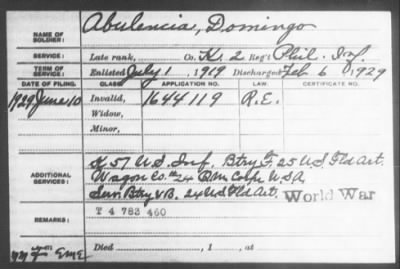 NAME OF SOLDIER: Abulencia, Domingo
SERVICE: Late rank, Co. K. 2 Reg't Phil. Inf.
TERM OF SERVICE: Enlisted July 1, 1919 Discharged Feb 6, 1929
DATE OF FILING. CLASS. APPLICATION NO. LAW. CERTIFICATE NO.
1929 June 10 Invalid, 1644119 R.E.
Widow,
Minor,
ADDITIONAL SERVICES: K 57 U.S. Inf., Btry F. 25 U.S. Fld Art.
Wagon Co. # 24 Q M Corps U.S.A.
Serv Btry & B. 24 U.S. Fld Art. World War
REMARKS: T 4 783 460
Died , 1 , at